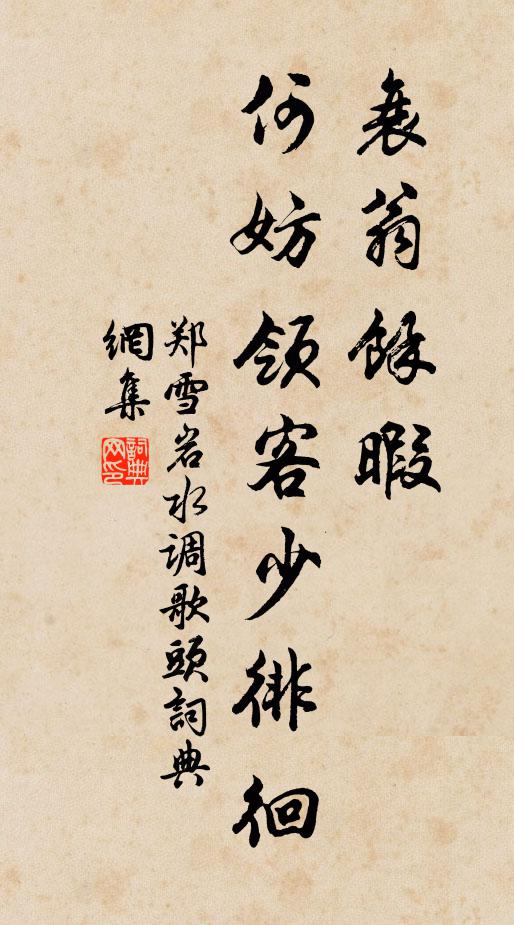 衰翁餘暇
何妨領客少徘徊
郑雪岩水调歌頭詞典
網集
詞典
网印